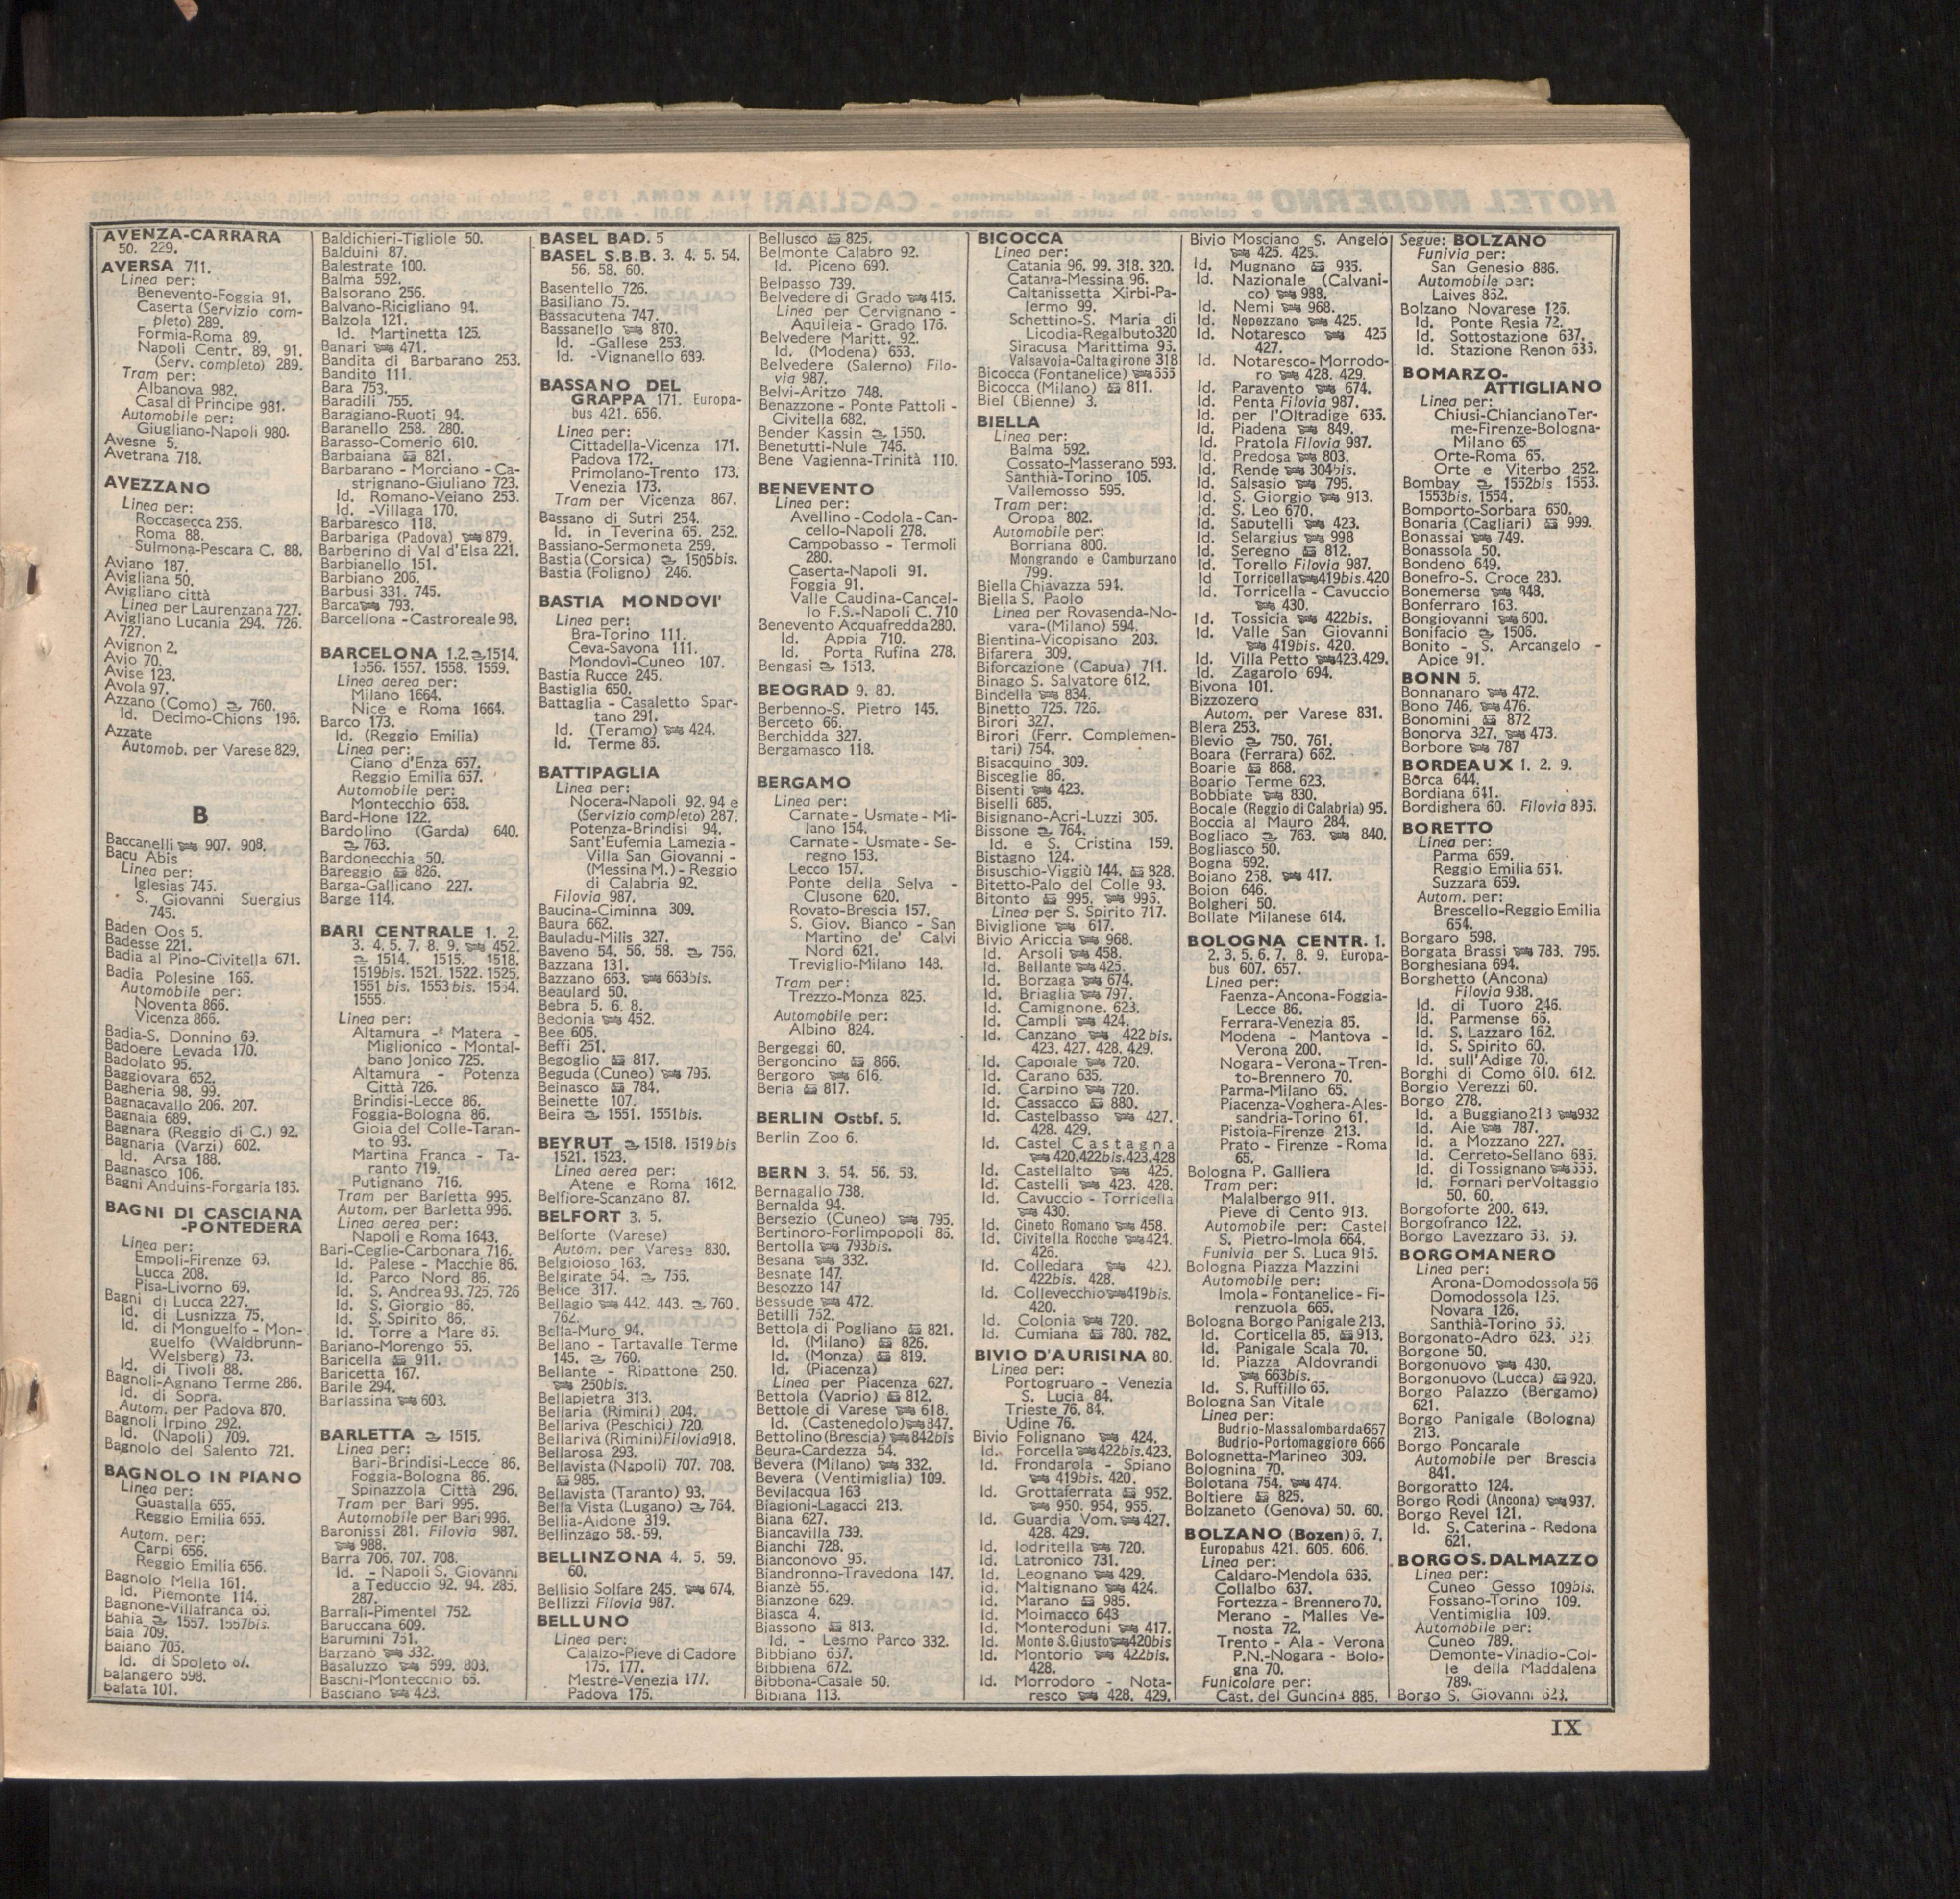 AVENZA-CARRARA
50. 229.
AVERSA 711.
Linea per:
Benevento-Foggia 91.
Caserta (Servizio com-
pleto) 289.
Formia-Roma 89.
Napoli Centr. 89. 91.
(Serv. completo) 289.
Tram per:
Albanova 982.
Casal di Principe 981.
Automobile per:
Giugliano-Napoli 980.
Avesne 5.
Avetrana 718.
AVEZZANO
Linea per:
Roccasecca 256.
Roma 88.
Sulmona-Pescara C. 88.
Aviano 187.
Avigliana 50.
Avigliano città
Linea per Laurenzana 727.
Avigliano Lucania 294. 726.
727.
Avignon 2.
Avio 70.
Avise 123.
Avola 97.
Azzano (Como) 760.
Id. Decimo-Chions 196.
Azzate
Automob. per Varese 829.
B
Baccanelli 907. 908.
Bacu Abis
Linea per:
Iglesias 745.
S. Giovanni Suergius
745.
Baden Oos 5.
Badesse 221.
Badia al Pino-Civitella 671.
Badia Polesine 166.
Automobile per:
Noventa 866.
Vicenza 866.
Badia-S. Donnino 69.
Badoere Levada 170.
Badolato 95.
Baggiovara 652.
Bagheria 98. 99.
Bagnacavallo 206. 207.
Bagnaia 689.
Bagnara (Reggio di C.) 92.
Bagnaria (Varzi) 602.
Id. Arsa 188.
Bagnasco 106.
Bagni Anduins-Forgaria 185.
BAGNI DI CASCIANA
-PONTEDERA
Linea per:
Empoli-Firenze 69.
Lucca 208.
Pisa-Livorno 69.
Bagni di Lucca 227.
Id. di Lusnizza 75.
Id. di Monguelfo - Mon-
guelfo (Waldbrunn-
Welsberg) 73.
Id. di Tivoli 88.
Bagnoli-Agnano Terme 286.
Id. di Sopra.
Autom. per Padova 870.
Bagnoli Irpino 292.
Id. (Napoli) 709.
Bagnolo del Salento 721.
BAGNOLO IN PIANO
Linea per:
Guastalla 655.
Reggio Emilia 655.
Autom. per:
Carpi 656.
Reggio Emilia 656.
Bagnolo Mella 161.
Id. Piemonte 114.
Bagnone-Villafranca 65.
Bahia 1557. 1557bis.
Baia 709.
Baiano 705.
Id. di Spoleto 67.
Balangero 598.
Balata 101.
Baldichieri-Tigliole 50.
Balduini 87.
Balestrate 100.
Balma 592.
Balsorano 256.
Balvano-Ricigliano 94.
Balzola 121.
Id. Martinetta 125.
Banari 471.
Bandita di Barbarano 253.
Bandito 111.
Bara 753.
Baradili 755.
Baragiano-Ruoti 94.
Baranello 258. 280.
Barasso-Comerio 610.
Barbaiana 821.
Barbarano - Morciano - Ca-
strignano-Giuliano 723.
Id. Romano-Veiano 253.
Id. -Villaga 170.
Barbaresco 118.
Barbariga (Padova) 879.
Barberino di Val d'Elsa 221.
Barbianello 151.
Barbiano 206.
Barbusi 331. 745.
Barca 793.
Barcellona -Castroreale 98.
BARCELONA 1.2. 1514.
1556. 1557. 1558. 1559.
Linea aerea per:
Milano 1664.
Nice e Roma 1664.
Barco 173.
Id. (Reggio Emilia)
Linea per:
Ciano d'Enza 657.
Reggio Emilia 657.
Automobile per:
Montecchio 658.
Bard-Hone 122.
Bardolino (Garda) 640.
763.
Bardonecchia 50.
Bareggio 826.
Barga-Gallicano 227.
Barge 114.
BARI CENTRALE 1. 2.
3. 4. 5. 7. 8. 9. 452.
1514. 1515. 1518.
1519bis. 1521. 1522. 1525.
1551 bis. 1553 bis. 1554.
1555.
Linea per:
Altamura - Matera -
Miglionico - Montal-
bano Jonico 725.
Altamura - Potenza
Città 726.
Brindisi-Lecce 86.
Foggia-Bologna 86.
Gioia del Colle-Taran-
to 93.
Martina Franca - Ta-
ranto 719.
Putignano 716.
Tram per Barletta 995.
Autom. per Barletta 996.
Linea aerea per:
Napoli e Roma 1643.
Bari-Ceglie-Carbonara 716.
Id. Palese - Macchie 86.
Id. Parco Nord 86.
Id. S. Andrea 93. 725. 726
Id. S. Giorgio 86.
Id. S. Spirito 86.
Id. Torre a Mare 86.
Bariano-Morengo 55.
Baricella 911.
Baricetta 167.
Barile 294.
Barlassina 603.
BARLETTA 1515.
Linea per:
Bari-Brindisi-Lecce 86.
Foggia-Bologna 86.
Spinazzola Città 296.
Tram per Bari 995.
Automobile per Bari 996.
Baronissi 281. Filovia 987.
988.
Barra 706. 707. 708.
Id. - Napoli S. Giovanni
a Teduccio 92. 94. 285.
287.
Barrali-Pimentel 752.
Baruccana 609.
Barumini 751.
Barzanò 332.
Basaluzzo 599. 803.
Baschi-Montecchio 65.
Basciano 423.
BASEL BAD. 5
BASEL S.B.B. 3. 4. 5. 54.
56. 58. 60.
Basentello 726.
Basiliano 75.
Bassacutena 747.
Bassanello 870.
Id. -Gallese 253.
Id. -Vignanello 689.
BASSANO DEL
GRAPPA 171. Europa-
bus 421. 656.
Linea per:
Cittadella-Vicenza 171.
Padova 172.
Primolano-Trento 173.
Venezia 173.
Tram per Vicenza 867.
Bassano di Sutri 254.
Id. in Teverina 65. 252.
Bassiano-Sermoneta 259.
Bastia (Corsica) 1505bis.
Bastia (Foligno) 246.
BASTIA MONDOVI'
Linea per:
Bra-Torino 111.
Ceva-Savona 111.
Mondovì-Cuneo 107.
Bastia Rucce 245.
Bastiglia 650.
Battaglia - Casaletto Spar-
tano 291.
Id. (Teramo) 424.
Id. Terme 85.
BATTIPAGLIA
Linea per:
Nocera-Napoli 92. 94 e
(Servizio completo) 287.
Potenza-Brindisi 94.
Sant'Eufemia Lamezia -
Villa San Giovanni -
(Messina M.) - Reggio
di Calabria 92.
Filovia 987.
Baucina-Ciminna 309.
Baura 662.
Bauladu-Milis 327.
Baveno 54. 56. 58. 756.
Bazzana 131.
Bazzano 663. 663bis.
Beaulard 50.
Bebra 5. 6. 8.
Bedonia 452.
Bee 605.
Beffi 251.
Begoglio 817.
Beguda (Cuneo) 795.
Beinasco 784.
Beinette 107.
Beira 1551. 1551bis.
BEYRUT 1518. 1519 bis
1521. 1523.
Linea aerea per:
Atene e Roma 1612.
Belfiore-Scanzano 87.
BELFORT 3. 5.
Belforte (Varese)
Autom. per Varese 830.
Belgioioso 163.
Belgirate 54. 756.
Belice 317.
Bellagio 442. 443. 760.
762.
Bella-Muro 94.
Bellano - Tartavalle Terme
145. 760.
Bellante - Ripattone 250.
250bis.
Bellapietra 313.
Bellaria (Rimini) 204.
Bellariva (Peschici) 720.
Bellariva (Rimini) Filovia 918.
Bellarosa 293.
Bellavista (Napoli) 707. 708.
985.
Bellavista (Taranto) 93.
Bella Vista (Lugano) 764.
Bellia-Aidone 319.
Bellinzago 58.-59.
BELLINZONA 4. 5. 59.
60.
Bellisio Solfare 245. 674.
Bellizzi Filovia 987.
BELLUNO
Linea per:
Calalzo-Pieve di Cadore
175. 177.
Mestre-Venezia 177.
Padova 175.
Bellusco 825.
Belmonte Calabro 92.
Id. Piceno 690.
Belpasso 739.
Belvedere di Grado 415.
Linea per Cervignano -
Aquileia - Grado 176.
Belvedere Maritt. 92.
Id. (Modena) 653.
Belvedere (Salerno) Filo-
via 987.
Belvi-Aritzo 748.
Benazzone - Ponte Pattoli -
Civitella 682.
Bender Kassin 1550.
Benetutti-Nule 746.
Bene Vagienna-Trinità 110.
BENEVENTO
Linea per:
Avellino - Codola - Can-
cello-Napoli 278.
Campobasso - Termoli
280.
Caserta-Napoli 91.
Foggia 91.
Valle Caudina-Cancel-
lo F.S.-Napoli C. 710
Benevento Acquafredda 280.
Id. Appia 710.
Id. Porta Rufina 278.
Bengasi 1513.
BEOGRAD 9. 80.
Berbenno-S. Pietro 145.
Berceto 66.
Berchidda 327.
Bergamasco 118.
BERGAMO
Linea per:
Carnate - Usmate - Mi-
lano 154.
Carnate - Usmate - Se-
regno 153.
Lecco 157.
Ponte della Selva -
Clusone 620.
Rovato-Brescia 157.
S. Giov. Bianco - San
Martino de' Calvi
Nord 621.
Treviglio-Milano 148.
Tram per:
Trezzo-Monza 825.
Automobile per:
Albino 824.
Bergeggi 60.
Bergoncino 866.
Bergoro 616.
Beria 817.
BERLIN Ostbf. 5.
Berlin Zoo 6.
BERN 3. 54. 56. 58.
Bernagallo 738.
Bernalda 94.
Bersezio (Cuneo) 795.
Bertinoro-Forlimpopoli 86.
Bertolla 793bis.
Besana 332.
Besnate 147.
Besozzo 147
Bessude 472.
Betilli 752.
Bettola di Pogliano 821.
Id. (Milano) 826.
Id. (Monza) 819.
Id. (Piacenza)
Linea per Piacenza 627.
Bettola (Vaprio) 812.
Bettole di Varese 618.
Id. (Castenedolo) 847.
Bettolino (Brescia) 842bis
Beura-Cardezza 54.
Bevera (Milano) 332.
Bevera (Ventimiglia) 109.
Bevilacqua 163
Biagioni-Lagacci 213.
Biana 627.
Biancavilla 739.
Bianchi 728.
Bianconovo 95.
Biandronno-Travedona 147.
Bianzè 55.
Bianzone 629.
Biasca 4.
Biassono 813.
Id. - Lesmo Parco 332.
Bibbiano 657.
Bibbiena 672.
Bibbona-Casale 50.
Bibiana 113.
BICOCCA
Linea per:
Catania 96. 99. 318. 320.
Catania-Messina 96.
Caltanissetta Xirbi-Pa-
lermo 99.
Schettino-S. Maria di
Licodia-Regalbuto320
Siracusa Marittima 96.
Valsavoia-Caltagirone 318
Bicocca (Fontanelice) 555
Bicocca (Milano) 811.
Biel (Bienne) 3.
BIELLA
Linea per:
Balma 592.
Cossato-Masserano 593.
Santhià-Torino 105.
Vallemosso 595.
Tram per:
Oropa 802.
Automobile per:
Borriana 800.
Mongrando e Camburzano
799.
Biella Chiavazza 594.
Biella S. Paolo
Linea per Rovasenda-No-
vara-(Milano) 594.
Bientina-Vicopisano 203.
Bifarera 309.
Biforcazione (Capua) 711.
Binago S. Salvatore 612.
Bindella 834.
Binetto 725. 726.
Birori 327.
Birori (Ferr. Complemen-
tari) 754.
Bisacquino 309.
Bisceglie 86.
Bisenti 423.
Biselli 685.
Bisignano-Acri-Luzzi 305.
Bissone 764.
Id. e S. Cristina 159.
Bistagno 124.
Bisuschio-Viggiù 144. 828.
Bitetto-Palo del Colle 93.
Bitonto 995. 996.
Linea per S. Spirito 717.
Biviglione 617.
Bivio Ariccia 968.
Id. Arsoli 458.
Id. Bellante 425.
Id. Borzaga 674.
Id. Briaglia 797.
Id. Camignone. 623.
Id. Campli 424.
Id. Canzano 422 bis.
423. 427. 428. 429.
Id. Capoiale 720.
Id. Carano 635.
Id. Carpino 720.
Id. Cassacco 880.
Id. Castelbasso 427.
428. 429.
Id. Castel Castagna
420.422bis.423.428
Id. Castellalto 425.
Id. Castelli 423. 428.
Id. Cavuccio - Torricella
430.
Id. Cineto Romano 458.
Id. Civitella Rocche 424.
426.
Id. Colledara 420.
422bis. 428.
Id. Collevecchio 419bis.
420.
Id. Colonia 720.
Id. Cumiana 780. 782.
BIVIO D'AURISINA 80.
Linea per:
Portogruaro - Venezia
S. Lucia 84.
Trieste 76. 84.
Udine 76.
Bivio Folignano 424.
Id. Forcella 422bis.423.
Id. Frondarola - Spiano
419bis. 420.
Id. Grottaferrata 952.
950. 954. 955.
Id. Guardia Vom. 427.
428. 429.
Id. Iodritella 720.
Id. Latronico 731.
Id. Leognano 429.
id. Maltignano 424.
Id. Marano 985.
Id. Moimacco 643
Id. Monteroduni 417.
Id. Monte S.Giusto 420bis
Id. Montorio 422bis.
428.
Id. Morrodoro - Nota-
resco 428. 429.
Bivio Mosciano S. Angelo
425. 426.
Id. Mugnano 935.
Id. Nazionale (Calvani-
co) 988.
Id. Nemi 968.
Id. Nepezzano 425.
Id. Notaresco 425
427.
Id. Notaresco-Morrodo-
ro 428. 429.
Id. Paravento 674.
Id. Penta Filovia 987.
Id. per l'Oltradige 635.
Id. Piadena 849.
Id. Pratola Filovia 987.
Id. Predosa 803.
Id. Rende 304bis.
Id. Salsasio 795.
Id. S. Giorgio 913.
Id. S. Leo 670.
Id. Saputelli 423.
Id. Selargius 998
Id. Seregno 812.
Id. Torello Filovia 987.
Id Torricella 419bis.420
Id. Torricella - Cavuccio
430.
Id. Tossicia 422bis.
Id. Valle San Giovanni
419bis. 420.
Id. Villa Petto 423.429.
Id. Zagarolo 694.
Bivona 101.
Bizzozero
Autom. per Varese 831.
Blera 253.
Blevio 750. 761.
Boara (Ferrara) 662.
Boarie 868.
Boario Terme 623.
Bobbiate 830.
Bocale (Reggio di Calabria) 95.
Boccia al Mauro 284.
Bogliaco 763. 840.
Bogliasco 50.
Bogna 592.
Boiano 258. 417.
Boion 646.
Bolgheri 50.
Bollate Milanese 614.
BOLOGNA CENTR. 1.
2. 3. 5. 6. 7. 8. 9. Europa-
bus 607. 657.
Linea per:
Faenza-Ancona-Foggia-
Lecce 86.
Ferrara-Venezia 85.
Modena - Mantova -
Verona 200.
Nogara - Verona - Tren-
to-Brennero 70.
Parma-Milano 65.
Piacenza-Voghera-Ales-
sandria-Torino 61.
Pistoia-Firenze 213.
Prato - Firenze - Roma
65.
Bologna P. Galliera
Tram per:
Malalbergo 911.
Pieve di Cento 913.
Automobile per: Castel
S. Pietro-Imola 664.
Funivia per S. Luca 915.
Bologna Piazza Mazzini
Automobile per:
Imola - Fontanelice - Fi-
renzuola 665.
Bologna Borgo Panigale 213.
Id. Corticella 85. 913.
Id. Panigale Scala 70.
Id. Piazza Aldovrandi
663bis.
Id. S. Ruffillo 65.
Bologna San Vitale
Linea per:
Budrio-Massalombarda667
Budrio-Portomaggiore 666
Bolognetta-Marineo 309.
Bolognina 70.
Bolotana 754. 474.
Boltiere 825.
Bolzaneto (Genova) 50. 60.
BOLZANO (Bozen) 6. 7.
Europabus 421. 605. 606.
Linea per:
Caldaro-Mendola 635.
Collalbo 637.
Fortezza - Brennero 70.
Merano - Malles Ve-
nosta 72.
Trento - Ala - Verona
P.N.-Nogara - Bolo-
gna 70.
Funicolare per:
Cast. del Guncina 885.
Segue: BOLZANO
Funivia per:
San Genesio 886.
Automobile per:
Laives 852.
Bolzano Novarese 126.
Id. Ponte Resia 72.
Id. Sottostazione 637.
Id. Stazione Renon 635.
BOMARZO-
ATTIGLIANO
Linea per:
Chiusi-Chianciano Ter-
me-Firenze-Bologna-
Milano 65.
Orte-Roma 65.
Orte e Viterbo 252.
Bombay 1552bis 1553.
1553bis. 1554.
Bomporto-Sorbara 650.
Bonaria (Cagliari) 999.
Bonassai 749.
Bonassola 50.
Bondeno 649.
Bonefro-S. Croce 280.
Bonemerse 848.
Bonferraro 163.
Bongiovanni 600.
Bonifacio 1506.
Bonito - S. Arcangelo -
Apice 91.
BONN 5.
Bonnanaro 472.
Bono 746. 476.
Bonomini 872
Bonorva 327. 473.
Borbore 787
BORDEAUX 1. 2. 9.
Borca 644.
Bordiana 641.
Bordighera 60. Filovia 895.
BORETTO
Linea per:
Parma 659.
Reggio Emilia 654.
Suzzara 659.
Autom. per:
Brescello-Reggio Emilia
654.
Borgaro 598.
Borgata Brassi 783. 795.
Borghesiana 694.
Borghetto (Ancona)
Filovia 938.
Id. di Tuoro 246.
Id. Parmense 66.
Id. S. Lazzaro 162.
Id. S. Spirito 60.
Id. sull'Adige 70.
Borghi di Como 610. 612.
Borgio Verezzi 60.
Borgo 278.
Id. a Buggiano 213 932
Id. Aie 787.
Id. a Mozzano 227.
Id. Cerreto-Sellano 685.
Id. di Tossignano 555.
Id. Fornari per Voltaggio
50. 60.
Borgoforte 200. 649.
Borgofranco 122.
Borgo Lavezzaro 53. 59.
BORGOMANERO
Linea per:
Arona-Domodossola 56
Domodossola 126.
Novara 126.
Santhià-Torino 55.
Borgonato-Adro 623.
Borgone 50.
Borgonuovo 430.
Borgonuovo (Lucca) 920.
Borgo Palazzo (Bergamo)
621.
Borgo Panigale (Bologna)
213.
Borgo Poncarale
Automobile per Brescia
841.
Borgoratto 124.
Borgo Rodi (Ancona) 937.
Borgo Revel 121.
Id. S. Caterina - Redona
621.
BORGO S. DALMAZZO
Linea per:
Cuneo Gesso 109bis.
Fossano-Torino 109.
Ventimiglia 109.
Automobile per:
Cuneo 789.
Demonte-Vinadio-Col-
le della Maddalena
789.
Borgo S. Giovanni 623.
IX